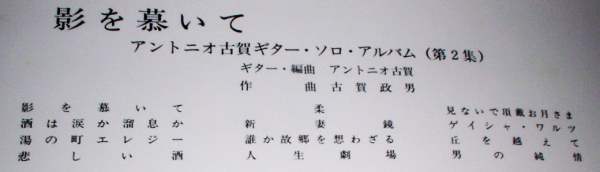 影を慕いて
アントニオ古賀ギター・ソロ・アルバム（第2集）
ギター・編曲 アントニオ古賀
作曲 古賀政男
影を慕いて 柔 見ないで頂戴お月さま
酒は涙か溜息か 新妻鏡 ゲイシャ・ワルツ
湯の町エレジー 誰か故郷を想わざる 丘を越えて
悲しい酒 人生劇場 男の純情